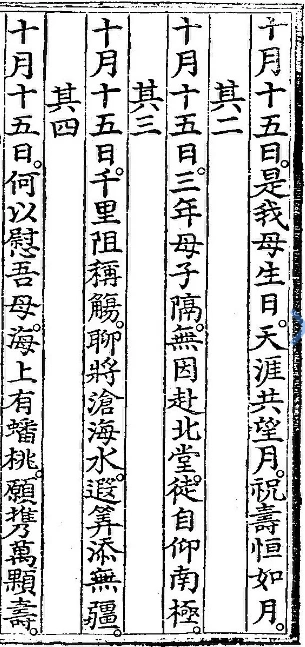 十月十五日。是我母生日。天涯共望月。祝壽恒如月。
其二
十月十五日。三年母子隔。無因赴北堂。徒自仰南極。
其三
十月十五日。千里阻稱觴。聊將滄海水。遐筭添無疆。
其四
十月十五日。何以慰吾母。海上有蟠桃。願携萬顆壽。